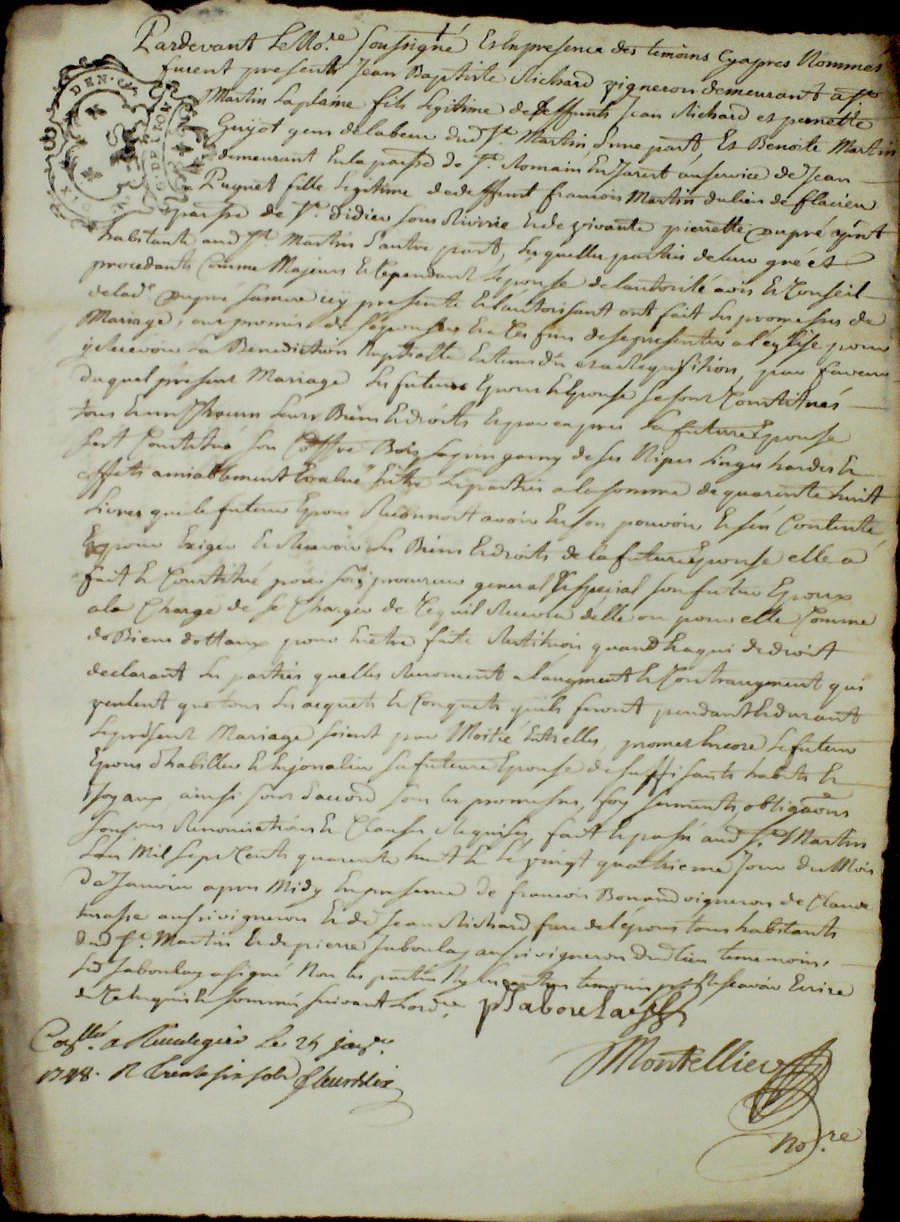 Pardevant Le No.re soussigné Et En presence des temoins Cyapres Nommes
furent presents Jean Baptiste Richard vigneron demeurant a St
Martin Laplaine fils Legitime de deffunts Jean Richard et pernette
Guyot gens de labeur dud St. Martin d'une part, Et Benoite Martin
demeurant En la parsse de St. Romain En Jarest au service de Jean
Puynet fille Legitime de deffunt francois Martin du lieu de flacieu
parsse de St. Didier sous Riverie Et de vivante pierrette Dupré
habitant aud St Martin d'autre part, Lesquelles parties de leur gré et
procedants Comme Majeurs Et Cependant Lepouse de lautorité avis Et Conseil
de lad. Dupré sa mere icy presente Et lautorisant ont fait les promesses de
Mariage, ont promis de sépouser Et a Ces fins de se presenter a l'eglise pour
y Recevoir La Benediction Nuptialle Entems du Et a Requisition, par faveur
duquel présent Mariage Les futurs Epoux Et Epouse se sont Constitués
tous Et un Chacun Leurs Biens Et droits Et par exprès La future Epouse
sest Constitué son Coffre Bois sapin garny de ses Nipes Linges hardes Et
effets amiablement Evalué Entre Les parties a la somme de quarente huit
Livres que le futur Epoux Reconnoit avoir En son pouvoir Et s'en Contente,
Et pour Exiger Et Recevoir Les Biens Et droits de la future Epouse elle a
fait Et Constitué pour son procureur general Et special son futur Epoux
a la Charge de se Charger de Ce quil Recevra delle ou pour elle Comme
de Biens dottaux pour En etre faite Restitution quand Et a qui de droit
declarant Les parties quelles Renoncent a laugment Et Contraugment qui
veulent que tous Les acquets Et Conquets quils feront pendant Et durant
Le présent Mariage soient par Moitié Entrelles, promet Encore Le futur
Epoux d'habiller Et Enjoualier sa future Epouse de suffisants habits Et
Joyaux, ainsi sont d'accord sous les promesses, foy serments, obligaons
Renonciations Et Clauses Requises, fait Et passé aud St. Martin
Lan Mil Sept Cents quarente huit Et Le vingt quatrieme Jour du Mois
De Janvier apres Midy En presence de francois Bonnand vigneron de Claude
aussi vigneron Et de Jean Richard frere de l'époux tous habitants
dud St. Martin Et de pierre saboulay aussi vigneron dud lieu temoins,
Led saboulay a signé Non les parties Ny Les autres temoins pour Ne scavoir Ecrire
de Ce Enquis Et sommés suivant Lord.ce
p Saboulay
Conllé. a Rivedegier Le 24 janv.er
1748. R trente six sols fleurdelix
Montellier
No.re
DEN.
G. DE LION